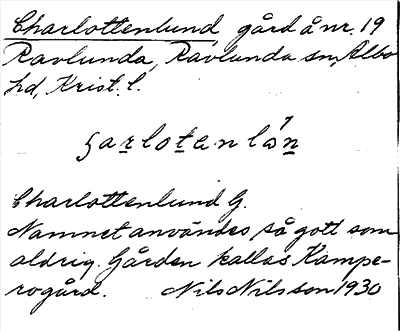 Charlottenlund gård å nr. 19
Ravlunda, Ravlunda sn, Albo
hd, Krist. l.
ʂarlotenlón
Charlottenlund G.
Namnet användes så gott som
aldrig. Gården kallas Kampe-
rogård. Nils Nilsson 1930